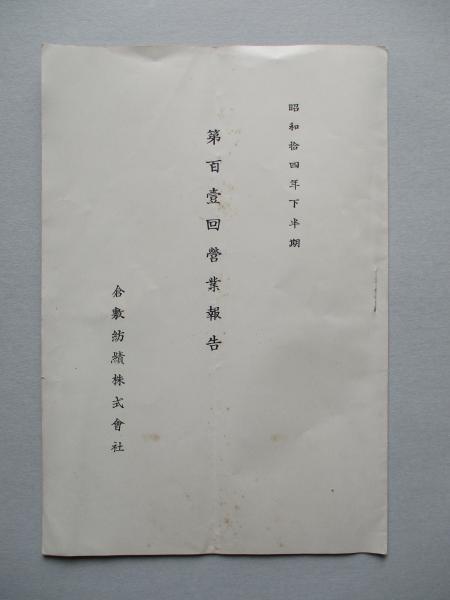 昭和拾四年下半期
第百壹回營業報告
倉敷紡績株式會社